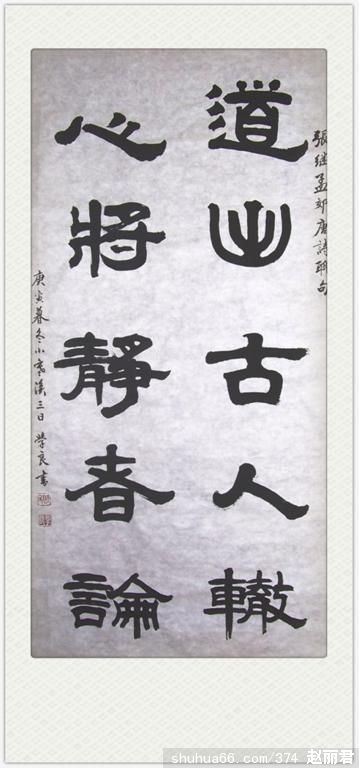 張继孟郊唐詩聯句
道出古人轍
心將靜者論
庚寅暮冬小寒後三日 學良書
shuhua66.com/374 赵丽君